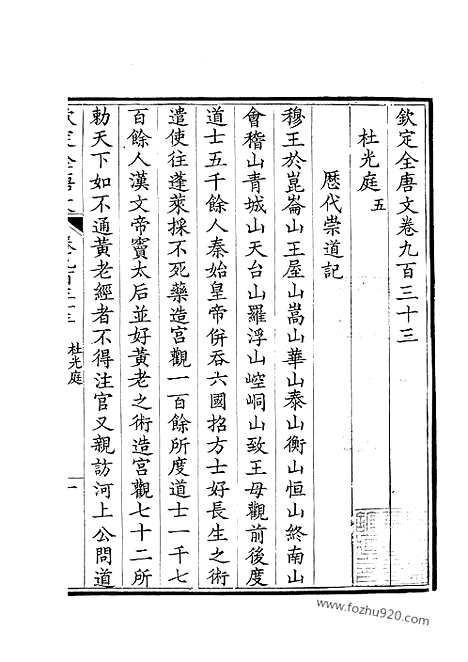 欽定全唐文卷九百三十三
杜光庭 五
歷代崇道記
穆王於崑崙山王屋山嵩山華山泰山衡山恒山終南山
會稽山青城山天台山羅浮山崆峒山致王母觀前後度
道士五千餘人秦始皇帝併吞六國招方士好長生之術
遣使往蓬萊採不死藥造宮觀一百餘所度道士一千七
百餘人漢文帝竇太后並好黃老之術造宮觀七十二所
勅天下如不通黃老經者不得注官又親訪河上公問道
杜光庭
一
www.fozhu920.com